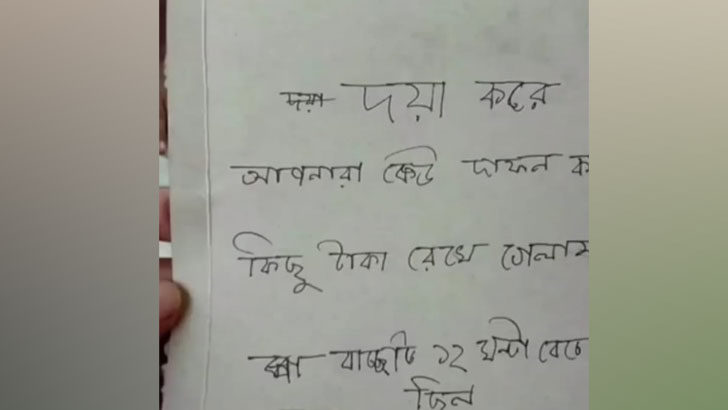 দয়া করে
আপনারা কেউ দাফন ক
কিছু টাকা রেখে গেলাম
বাচ্চাটি ১২ ঘন্টা বেচে
ছিল